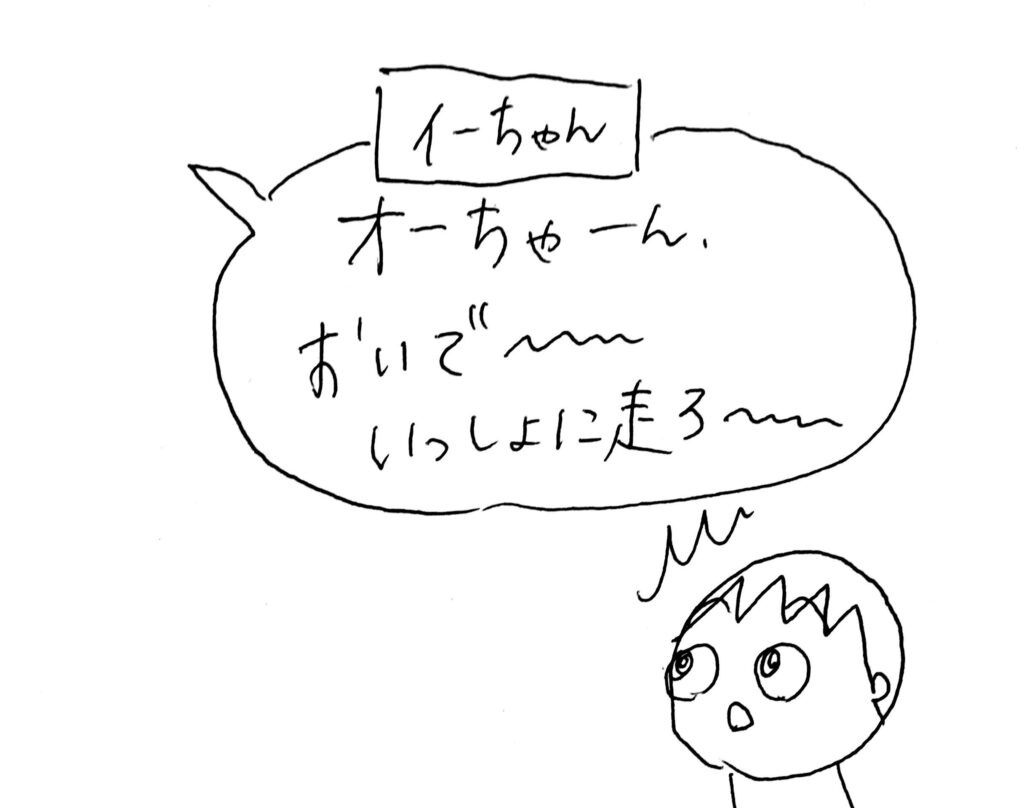 イーちゃん
オーちゃーん.
おいで〜〜
いっしょに走ろ〜〜